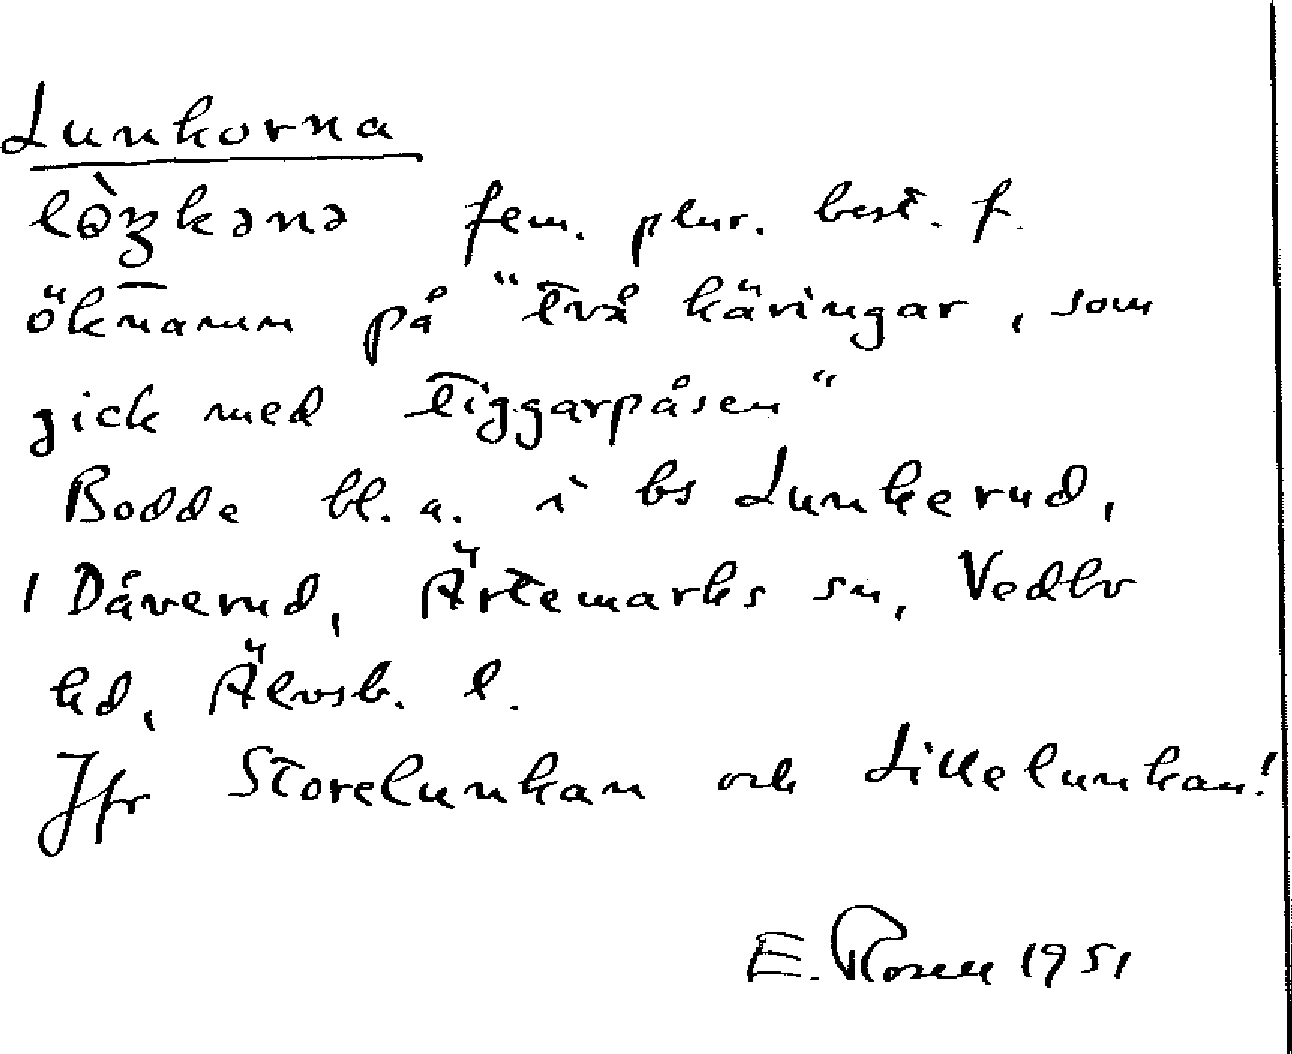 Lunkorna
fem. plur. best. f.
öknamn på "två käringar, som
gick med tiggarpåsen"
Bodde bl. a. i bs Lunkerud,
i Dåverud, Ärtemarks sn, Vedbo
hd, Älvsb. l.
Jfr Storelunkan och Lillelunkan!
E. Rosen 1951